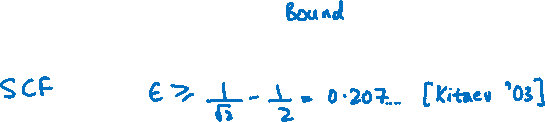 Bound
SCF ε ≥ 1/√2 - 1/2 = 0.207... [Kitaev '03]